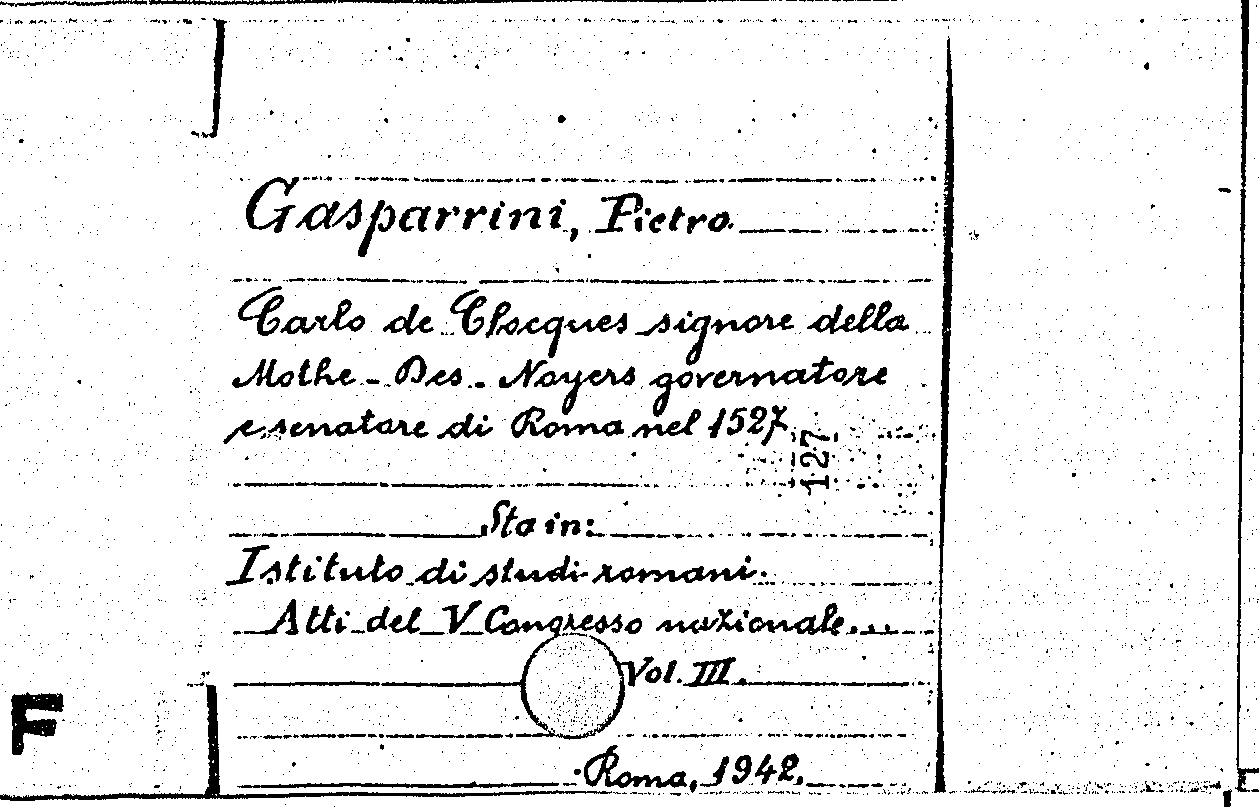 Gasparrini, Pietro.
Carlo de Chocques signore della
Mothe - Des - Noyers governatore
e senatore di Roma nel 1527
127
Sta in:
Istituto di studi romani.
Atti del V Congresso nazionale...
Vol. III.
F
Roma, 1942.